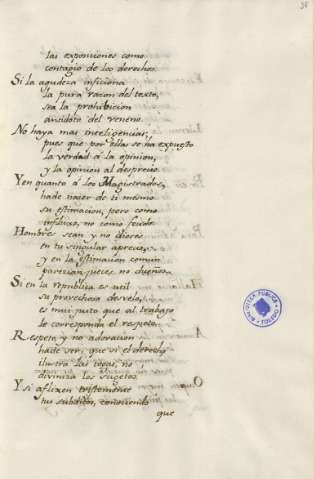 las exposiciones como
contagio de los derechos.
Si la agudeza inficiona
la pura razon del texto,
sea la prohibicion
antidoto del veneno.
No haya mas inteligencias,
pues que por ellas se ha expuesto
la verdad á la opinion,
y la opinion al desprecio.
Y en quanto á los Magistrados,
hade nazer de ti mesmo
su estimacion, pero como
influxo, no como feudo.
Hombres sean y no Dioses
en tu singular aprecio,
y en la estimacion comun
parezcan juezes no dueños.
Si en la republica es util
su provechoso desvelo,
es mui justo que al trabajo
le corresponda el respeto.
Respeto, y no adoracion
hade ser, que si el derecho
ilustra las ideas, no
diviniza los sugetos.
Y si afligen tristemente
tus subditos, conociendo
que
BIBLIOTECA PUBLICA
TOLEDO